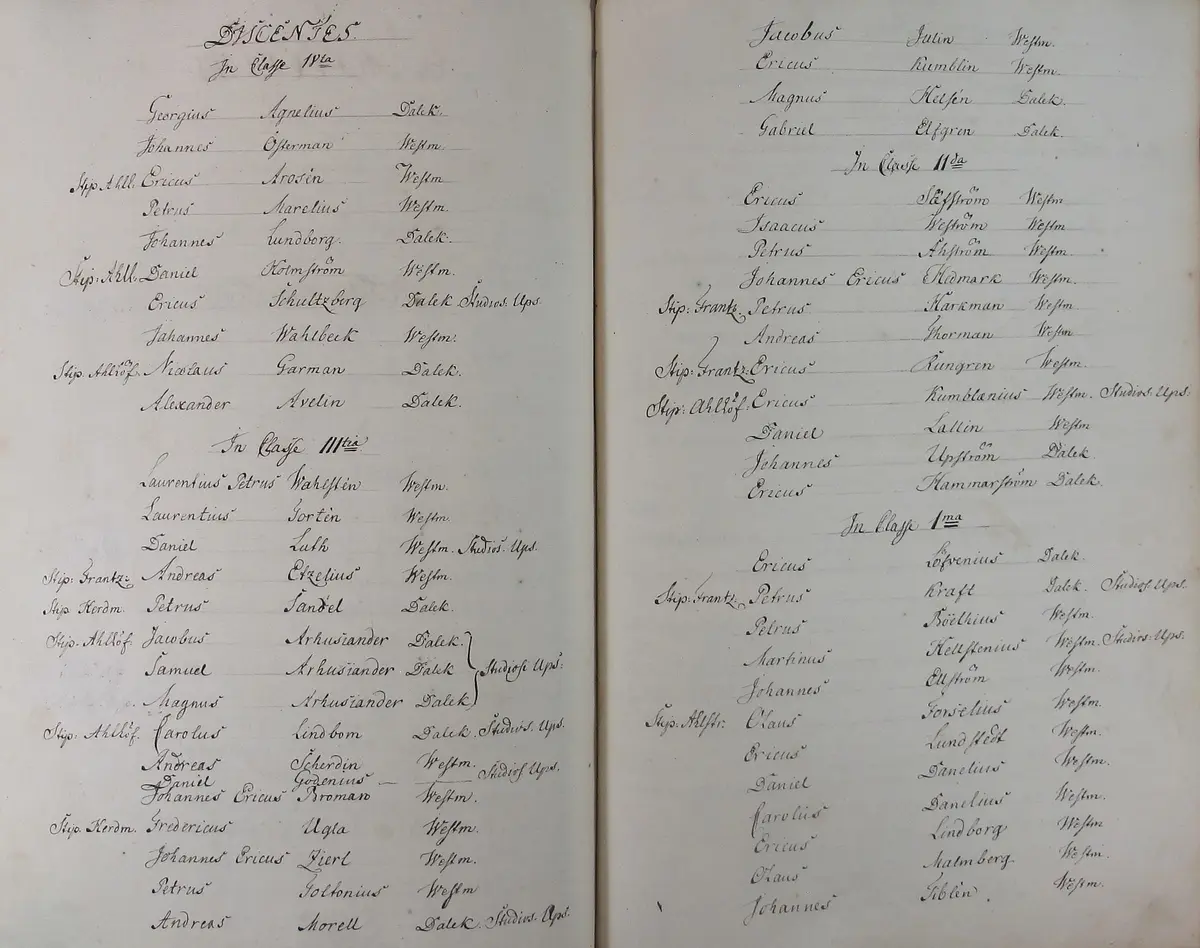 DISCENTES.
In Classe IVta
Georgius Agnelius Dalek.
Johannes Österman Westm.
Stip. Ahll. Ericus Arosén Westm
Petrus Marelius Westm.
Johannes Lundborg. Dalek.
Stip: Ahll. Daniel Holmström Westm.
Ericus Schultzberg Dalek. Studios. Ups.
Johannes Wahlbeck Westm.
Stip. Ahllöf. Nicolaus Garman Dalek.
Alexander Avelin Dalek.
In Classe IIItia
Laurentius Petrus Wahlstén Westm.
Laurentius Tortén Westm.
Daniel Luth Westm. Studios. Ups.
Stip: Grantz: Andreas Etzelius Westm.
Stip. Herdm. Petrus Sandel Dalek.
Stip. Ahllöf. Jacobus Arhusiander Dalek.
Samuel Arhusiander Dalek Studiosi Ups:
Magnus Arhusiander Dalek
Stip: Ahllöf. Carolus Lindbom Dalek. Studios. Ups.
Andreas Scherdin Westm.
Daniel Godenius — Studios Ups.
Johannes Ericus Broman Westm.
Stip. Herdm. Fredericus Ugla Westm.
Johannes Ericus Zierl Westm.
Petrus Toltonius Westm
Andreas Morell Dalek. Studios. Ups.
Jacobus Julin Westm.
Ericus Kumblin Westm.
Magnus Helsén Dalek.
Gabriel Elfgren Dalek.
In Classe IIda
Ericus Säfström Westm
Isaacus Weström Westm.
Petrus Åhström Westm.
Johannes Ericus Hedmark Westm.
Stip: Grantz. Petrus Harkman Westm.
Andreas Thorman Westm.
Stip: Grantz: Ericus Rungren Westm.
Stip: Ahllöf. Ericus Kumblænius Westm. Studios. Ups.
Daniel Lallin Westm
Johannes Upström Dalek
Ericus Hammarström Dalek.
In Classe Ima
Ericus Löfvenius Dalek.
Stip: Grantz. Petrus Kraft Dalek. Studios. Ups.
Petrus Böethius Westm.
Martinus Hellstenius Westm. Studios: Ups.
Johannes Ellström Westm.
Stip: Ahlstr: Olaus Torselius Westm.
Ericus Lundstedt Westm.
Daniel Danelius Westm.
Carolus Danelius Westm.
Ericus Lindborg Westm
Olaus Malmberg. Westm.
Johannes Tiblén. Westm.